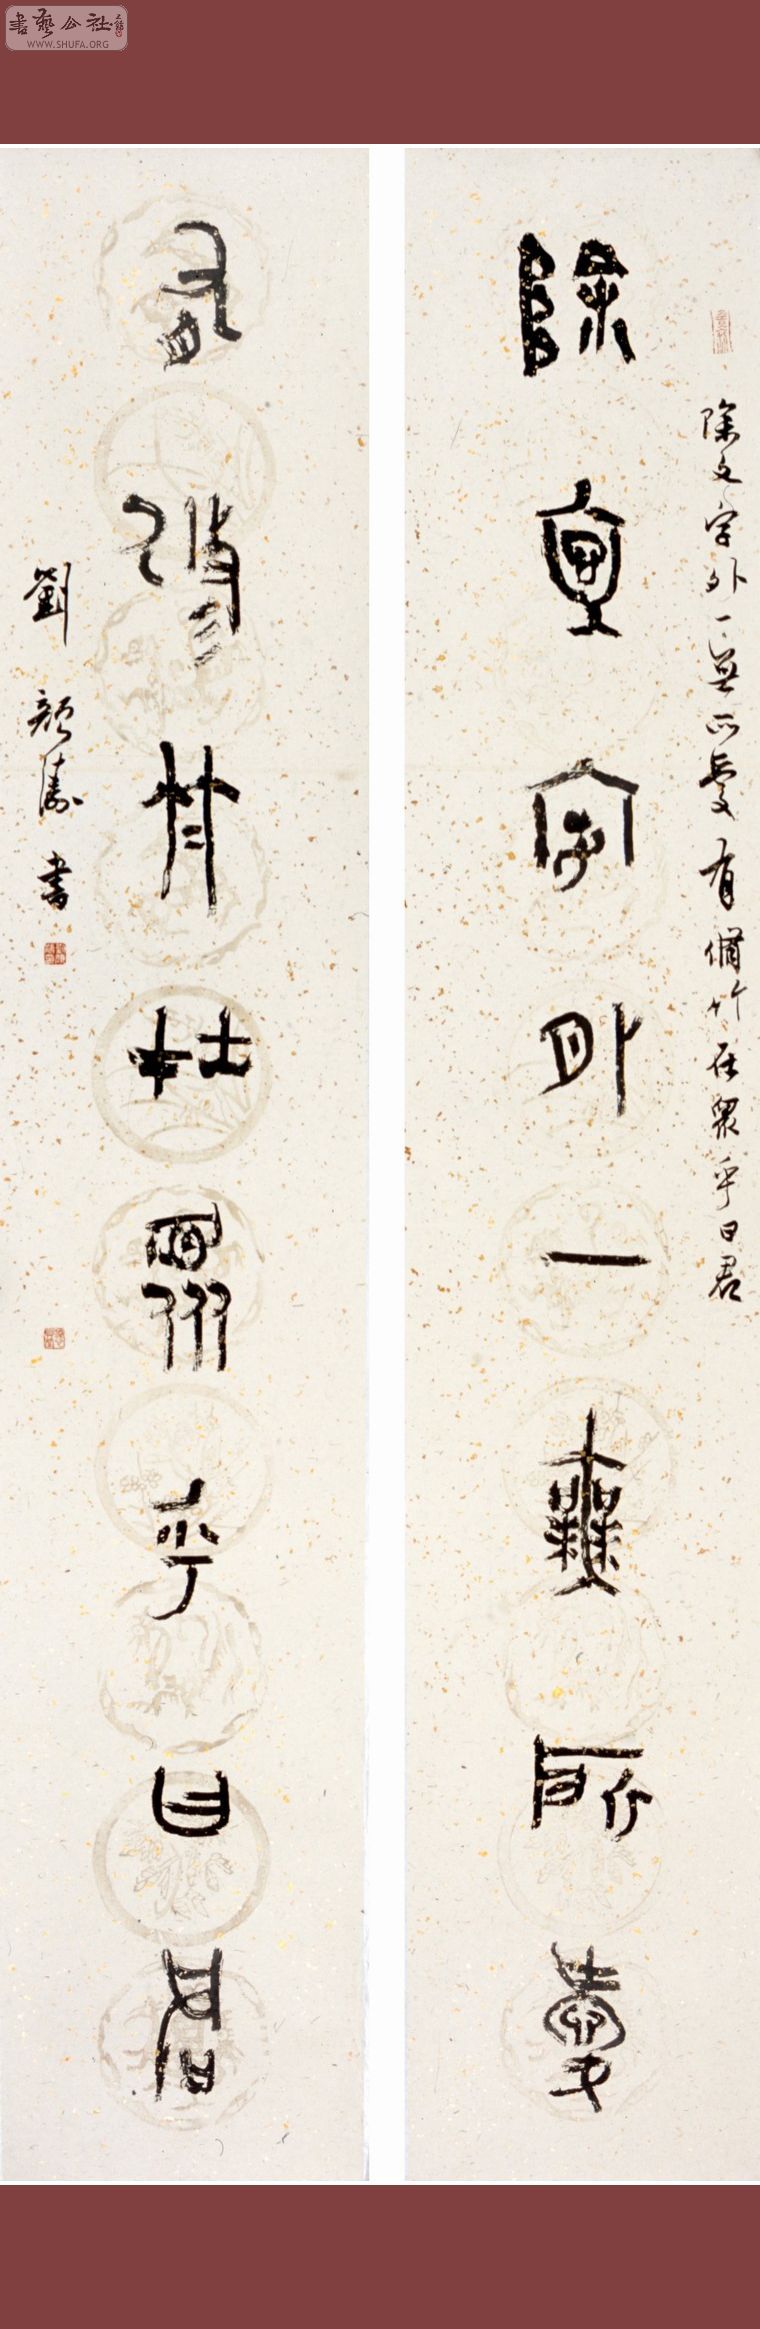 書藝公社
WWW.SHUFA.ORG
除文字外一無所愛
除文字外一無所愛有脩竹在眾乎曰君
有脩竹在眾乎曰君
劉顏濤書